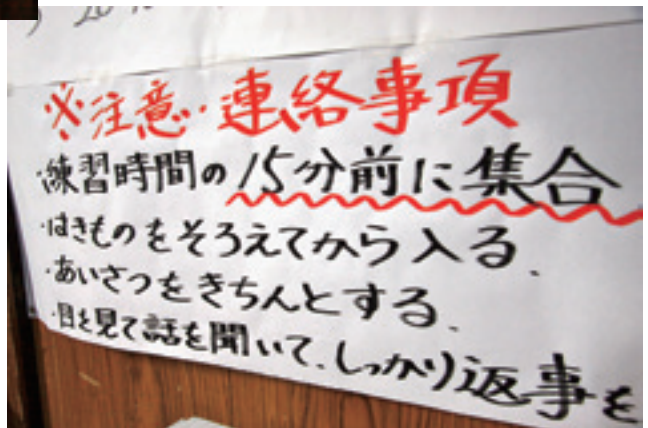 ※注意・連絡事項
・練習時間の15分前に集合
・はきものをそろえてから入る、
・あいさつをきちんとする、
・目を見て話を聞いて、しっかり返事を